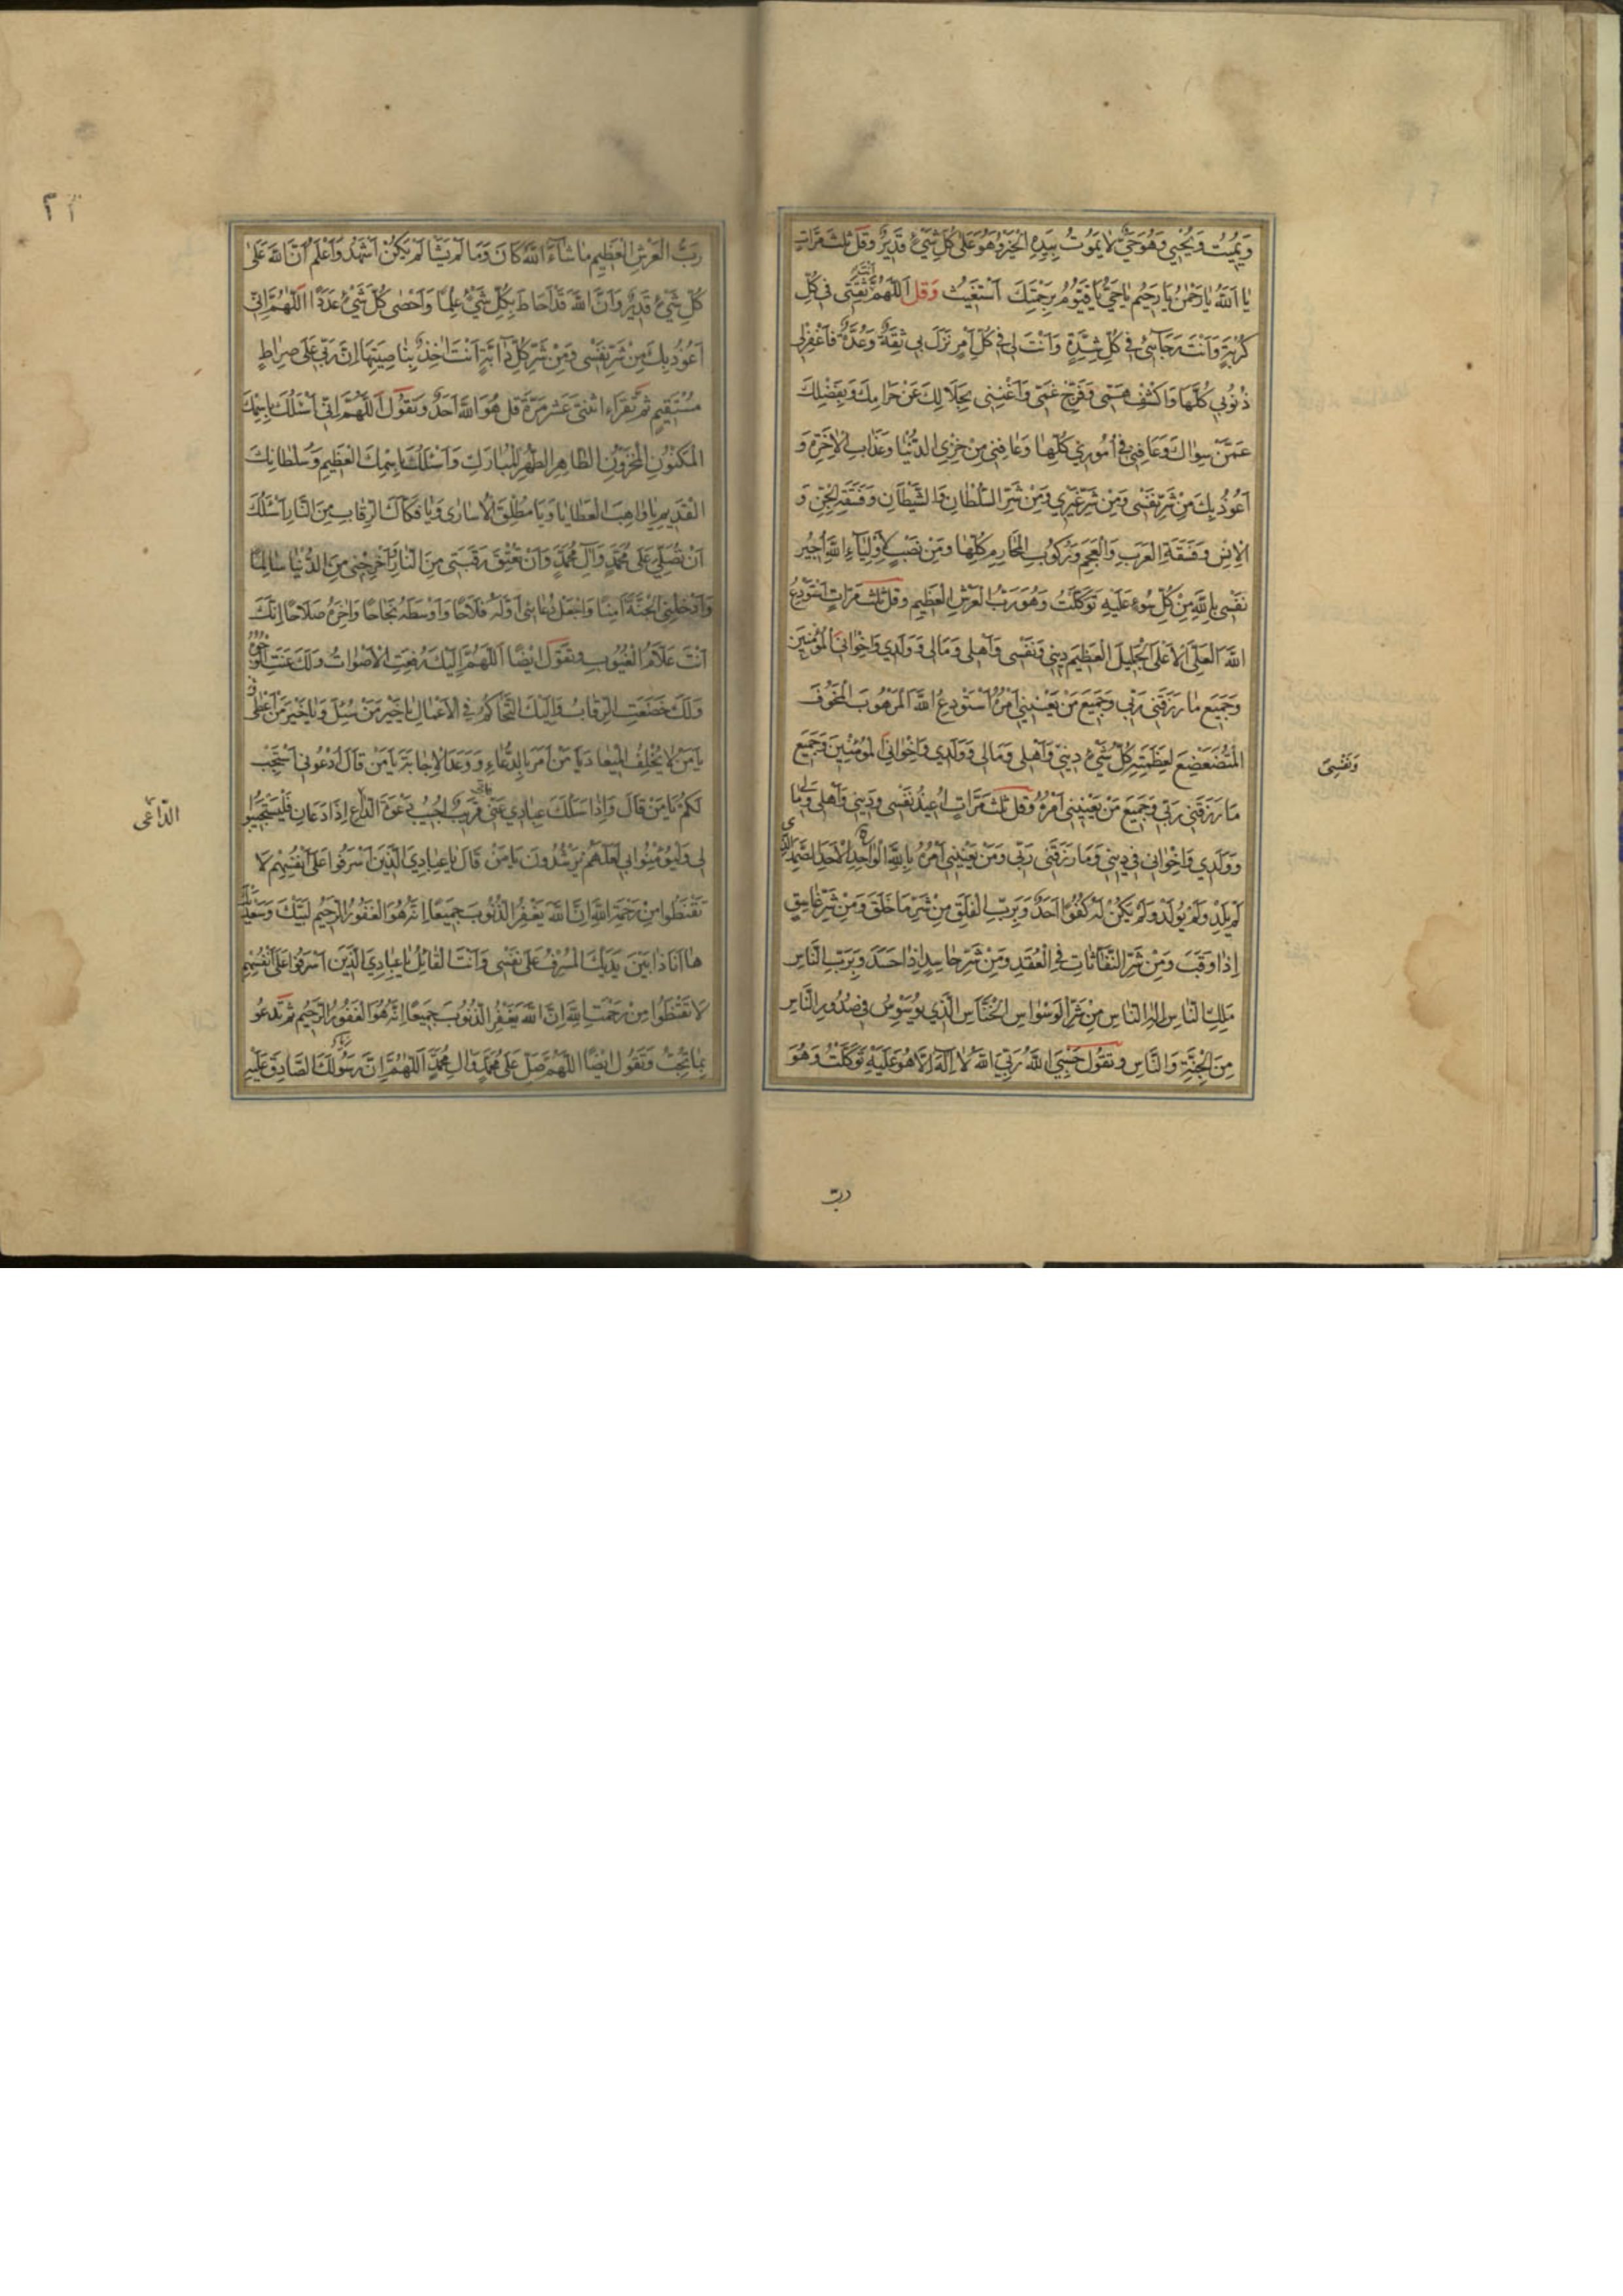 وَيُمِيتُ وَيُحْيِي وَهُوَ حَيٌّ لَا يَمُوتُ بِيَدِهِ الْخَيْرُ وَهُوَ عَلَى كُلِّ شَيْءٍ قَدِيرٌ وَقُلْ ثَلٰثَ مَرَّاتٍ
يَا اَللّٰهُ يَا رَحْمٰنُ يَا رَحِيمُ يَا حَيُّ يَا قَيُّومُ بِرَحْمَتِكَ اَسْتَغِيثُ وَقُلْ اَللّٰهُمَّ اَنْتَ ثِقَتِي فِي كُلِّ
كُرْبَةٍ وَاَنْتَ رَجَائِي فِي كُلِّ شِدَّةٍ وَاَنْتَ لِي فِي كُلِّ اَمْرٍ نَزَلَ بِي ثِقَةٌ وَعُدَّةٌ فَاغْفِرْ لِي
ذُنُوبِي كُلَّهَا وَاكْشِفْ هَمِّي وَفَرِّجْ غَمِّي وَاَغْنِنِي بِحَلَالِكَ عَنْ حَرَامِكَ وَبِفَضْلِكَ
عَمَّنْ سِوَاكَ وَعَافِنِي فِي اُمُورِي كُلِّهَا وَعَافِنِي مِنْ خِزْيِ الدُّنْيَا وَعَذَابِ الْاٰخِرَةِ وَ
اَعُوذُ بِكَ مِنْ شَرِّ نَفْسِي وَمِنْ شَرِّ غَيْرِي وَمِنْ شَرِّ السُّلْطَانِ وَالشَّيْطَانِ وَفَسَقَةِ الْجِنِّ وَ
الْاِنْسِ وَفَسَقَةِ الْعَرَبِ وَالْعَجَمِ وَرُكُوبِ الْمَحَارِمِ كُلِّهَا وَمَنْ نَصَبَ لِاَوْلِيَاءِ اللّٰهِ اُجِيرُ
نَفْسِي بِاللّٰهِ مِنْ كُلِّ سُوءٍ عَلَيْهِ تَوَكَّلْتُ وَهُوَ رَبُّ الْعَرْشِ الْعَظِيمِ وَقُلْ ثَلٰثَ مَرَّاتٍ اَسْتَوْدِعُ
اللّٰهَ الْعَلِيَّ الْاَعْلَى الْجَلِيلَ الْعَظِيمَ دِينِي وَنَفْسِي وَاَهْلِي وَمَالِي وَوَلَدِي وَاِخْوَانِيَ الْمُؤْمِنِينَ
وَجَمِيعَ مَا رَزَقَنِي رَبِّي وَجَمِيعَ مَنْ يَعْنِينِي اَمْرُهُ اَسْتَوْدِعُ اللّٰهَ الْمَرْهُوبَ الْمَخُوفَ
الْمُتَضَعْضِعَ لِعَظَمَتِهِ كُلُّ شَيْءٍ دِينِي وَاَهْلِي وَمَالِي وَوَلَدِي وَاِخْوَانِيَ الْمُؤْمِنِينَ وَجَمِيعَ
وَنَفْسِي
مَا رَزَقَنِي رَبِّي وَجَمِيعَ مَنْ يَعْنِينِي اَمْرُهُ وَقُلْ ثَلٰثَ مَرَّاتٍ اُعِيذُ نَفْسِي وَدِينِي وَاَهْلِي وَمَالِي
وَوَلَدِي وَاِخْوَانِي فِي دِينِي وَمَا رَزَقَنِي رَبِّي وَمَنْ يَعْنِينِي اَمْرُهُ بِاللّٰهِ الْوَاحِدِ الْاَحَدِ الصَّمَدِ الَّذِي
لَمْ يَلِدْ وَلَمْ يُولَدْ وَلَمْ يَكُنْ لَهُ كُفُوًا اَحَدٌ وَبِرَبِّ الْفَلَقِ مِنْ شَرِّ مَا خَلَقَ وَمِنْ شَرِّ غَاسِقٍ
اِذَا وَقَبَ وَمِنْ شَرِّ النَّفَّاثَاتِ فِي الْعُقَدِ وَمِنْ شَرِّ حَاسِدٍ اِذَا حَسَدَ وَبِرَبِّ النَّاسِ
مَلِكِ النَّاسِ اِلٰهِ النَّاسِ مِنْ شَرِّ الْوَسْوَاسِ الْخَنَّاسِ الَّذِي يُوَسْوِسُ فِي صُدُورِ النَّاسِ
مِنَ الْجِنَّةِ وَالنَّاسِ وَتَقُولُ حَسْبِيَ اللّٰهُ رَبِّيَ اللّٰهُ لَا اِلٰهَ اِلَّا هُوَ عَلَيْهِ تَوَكَّلْتُ وَهُوَ
رب
رَبُّ الْعَرْشِ الْعَظِيمِ مَا شَاءَ اللّٰهُ كَانَ وَمَا لَمْ يَشَأْ لَمْ يَكُنْ اَشْهَدُ وَاَعْلَمُ اَنَّ اللّٰهَ عَلَى
كُلِّ شَيْءٍ قَدِيرٌ وَاَنَّ اللّٰهَ قَدْ اَحَاطَ بِكُلِّ شَيْءٍ عِلْمًا وَاَحْصَى كُلَّ شَيْءٍ عَدَدًا اَللّٰهُمَّ اِنِّي
اَعُوذُ بِكَ مِنْ شَرِّ نَفْسِي وَمِنْ شَرِّ كُلِّ دَابَّةٍ اَنْتَ اٰخِذٌ بِنَاصِيَتِهَا اِنَّ رَبِّي عَلَى صِرَاطٍ
مُسْتَقِيمٍ ثُمَّ تَقْرَاءُ اثْنَتَيْ عَشَرَ مَرَّةً قُلْ هُوَ اللّٰهُ اَحَدٌ وَتَقُولُ اَللّٰهُمَّ اِنِّي اَسْئَلُكَ بِاسْمِكَ
الْمَكْنُونِ الْمَخْزُونِ الطَّاهِرِ الطُّهْرِ الْمُبَارَكِ وَاَسْئَلُكَ بِاسْمِكَ الْعَظِيمِ وَسُلْطَانِكَ
الْقَدِيمِ يَا وَاهِبَ الْعَطَايَا وَيَا مُطْلِقَ الْاُسَارَى وَيَا فَكَّاكَ الرِّقَابِ مِنَ النَّارِ اَسْئَلُكَ
اَنْ تُصَلِّيَ عَلَى مُحَمَّدٍ وَاٰلِ مُحَمَّدٍ وَاَنْ تُعْتِقَ رَقَبَتِي مِنَ النَّارِ وَاَخْرِجْنِي مِنَ الدُّنْيَا سَالِمًا
وَاَدْخِلْنِي الْجَنَّةَ اٰمِنًا وَاجْعَلْ دُعَائِي اَوَّلَهُ فَلَاحًا وَاَوْسَطَهُ نَجَاحًا وَاٰخِرَهُ صَلَاحًا اِنَّكَ
اَنْتَ عَلَّامُ الْغُيُوبِ وَتَقُولُ اَيْضًا اَللّٰهُمَّ اِلَيْكَ رُفِعَتِ الْاَصْوَاتُ وَلَكَ عَنَتِ الْوُجُوهُ
وَلَكَ خَضَعَتِ الرِّقَابُ وَاِلَيْكَ التَّحَاكُمُ فِي الْاَعْمَالِ يَا خَيْرَ مَنْ سُئِلَ وَيَا خَيْرَ مَنْ اَعْطَى
يَا مَنْ لَا يُخْلِفُ الْمِيعَادَ يَا مَنْ اَمَرَ بِالدُّعَاءِ وَوَعَدَ الْاِجَابَةَ يَا مَنْ قَالَ اُدْعُونِي اَسْتَجِبْ
لَكُمْ يَا مَنْ قَالَ وَاِذَا سَئَلَكَ عِبَادِي عَنِّي فَاِنِّي قَرِيبٌ اُجِيبُ دَعْوَةَ الدَّاعِ اِذَا دَعَانِ فَلْيَسْتَجِيبُوا
الدَّاعِي
لِي وَلْيُؤْمِنُوا بِي لَعَلَّهُمْ يَرْشُدُونَ يَا مَنْ قَالَ يَا عِبَادِيَ الَّذِينَ اَسْرَفُوا عَلَى اَنْفُسِهِمْ لَا
تَقْنَطُوا مِنْ رَحْمَةِ اللّٰهِ اِنَّ اللّٰهَ يَغْفِرُ الذُّنُوبَ جَمِيعًا اِنَّهُ هُوَ الْغَفُورُ الرَّحِيمُ لَبَّيْكَ وَسَعْدَيْكَ
هَا اَنَا ذَا بَيْنَ يَدَيْكَ الْمُسْرِفُ عَلَى نَفْسِي وَاَنْتَ الْقَائِلُ يَا عِبَادِيَ الَّذِينَ اَسْرَفُوا عَلَى اَنْفُسِهِمْ
لَا تَقْنَطُوا مِنْ رَحْمَةِ اللّٰهِ اِنَّ اللّٰهَ يَغْفِرُ الذُّنُوبَ جَمِيعًا اِنَّهُ هُوَ الْغَفُورُ الرَّحِيمُ ثُمَّ تَدْعُو
بِمَا تُحِبُّ وَتَقُولُ اَيْضًا اَللّٰهُمَّ صَلِّ عَلَى مُحَمَّدٍ وَاٰلِ مُحَمَّدٍ اَللّٰهُمَّ اِنَّ رَسُولَكَ الصَّادِقَ عَلَيْهِ